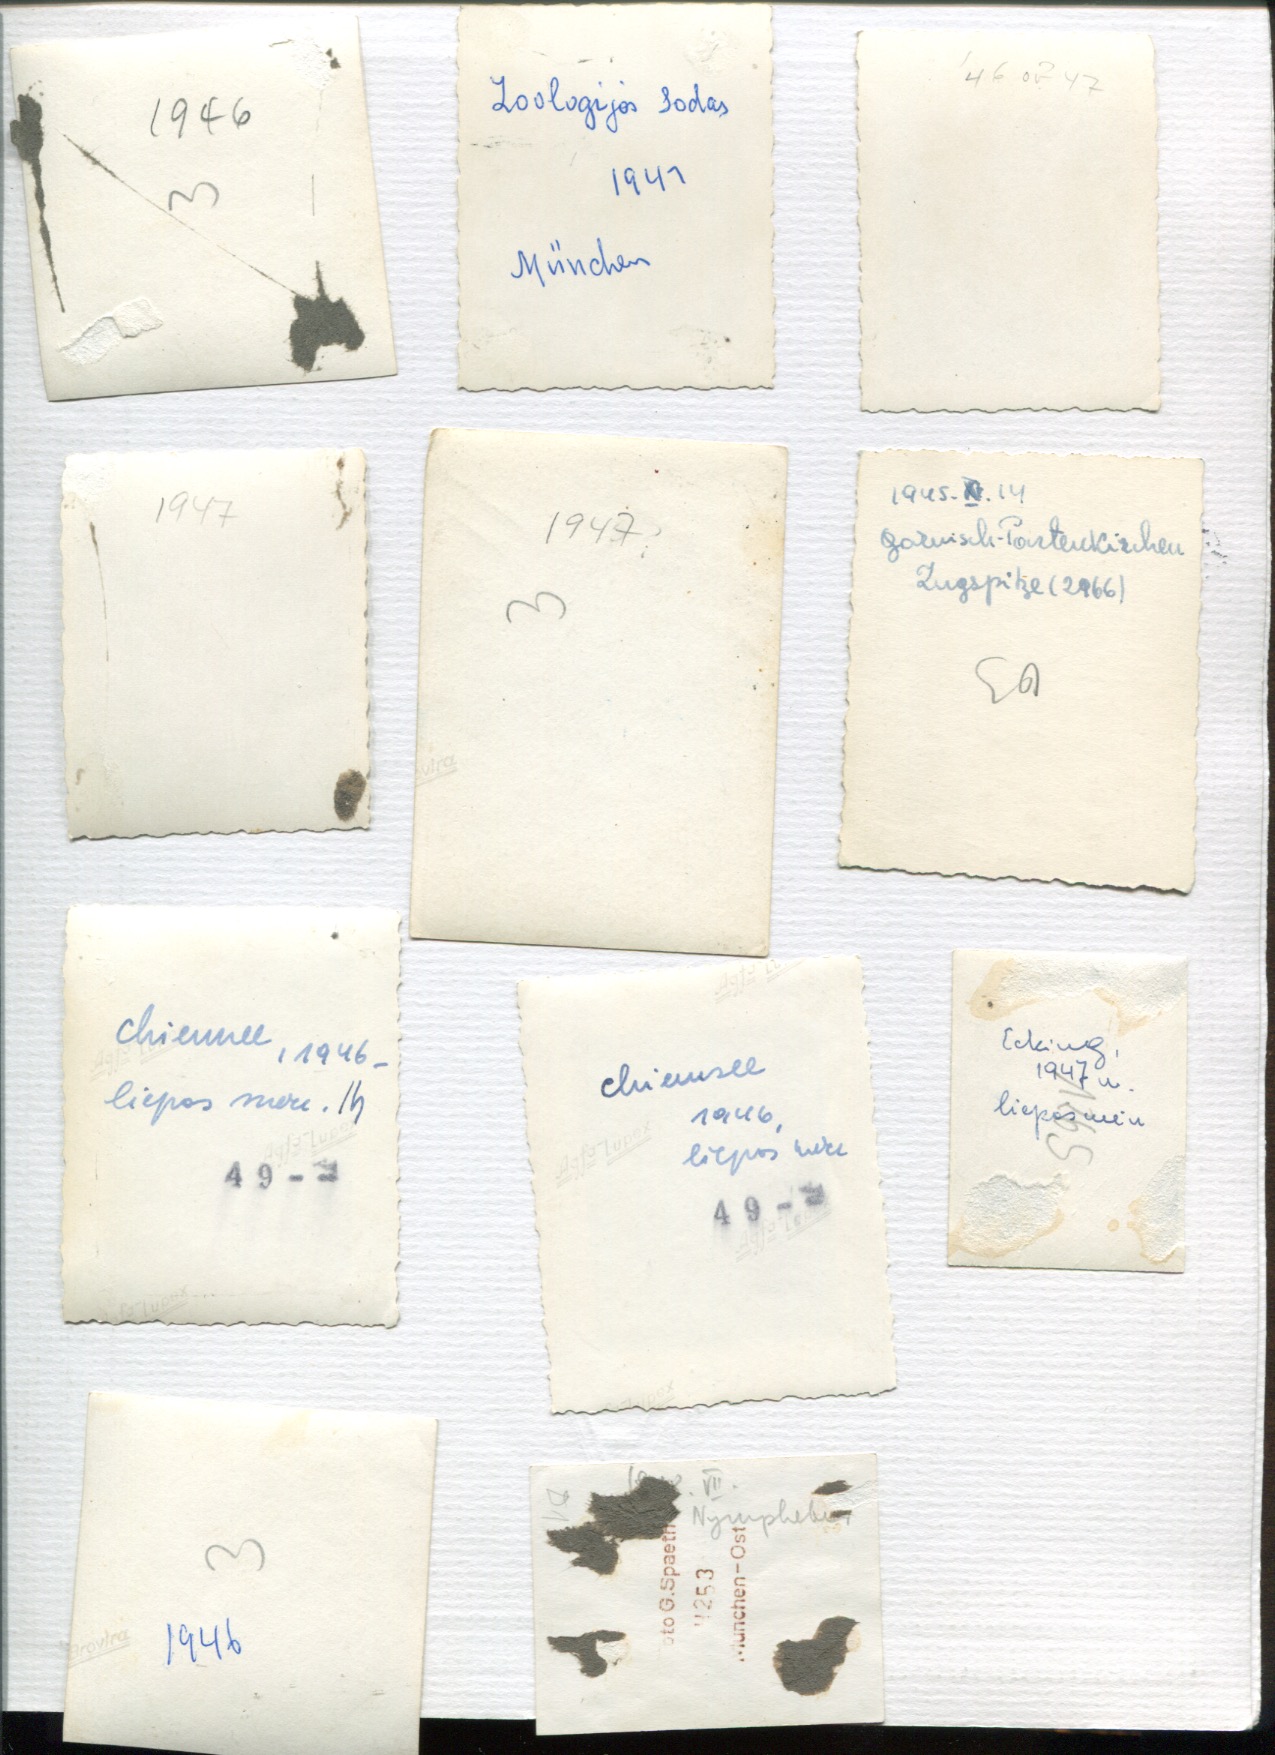 1946
3
Zoologijos Sodas
1947
München
'46 or 47
1947
1947?
3
1945. .14
Garmisch-Partenkirchen
Zugspitze (2966)
Chiemsee, 1946-
liepos mėn.
49-
Chiemsee
1946,
liepos mėn
49-
Ecking,
1947 m.
liepos mėn
3
1946
Brovira
VII.
Nymphebur
oto G.Spaeth
4253
München-Ost